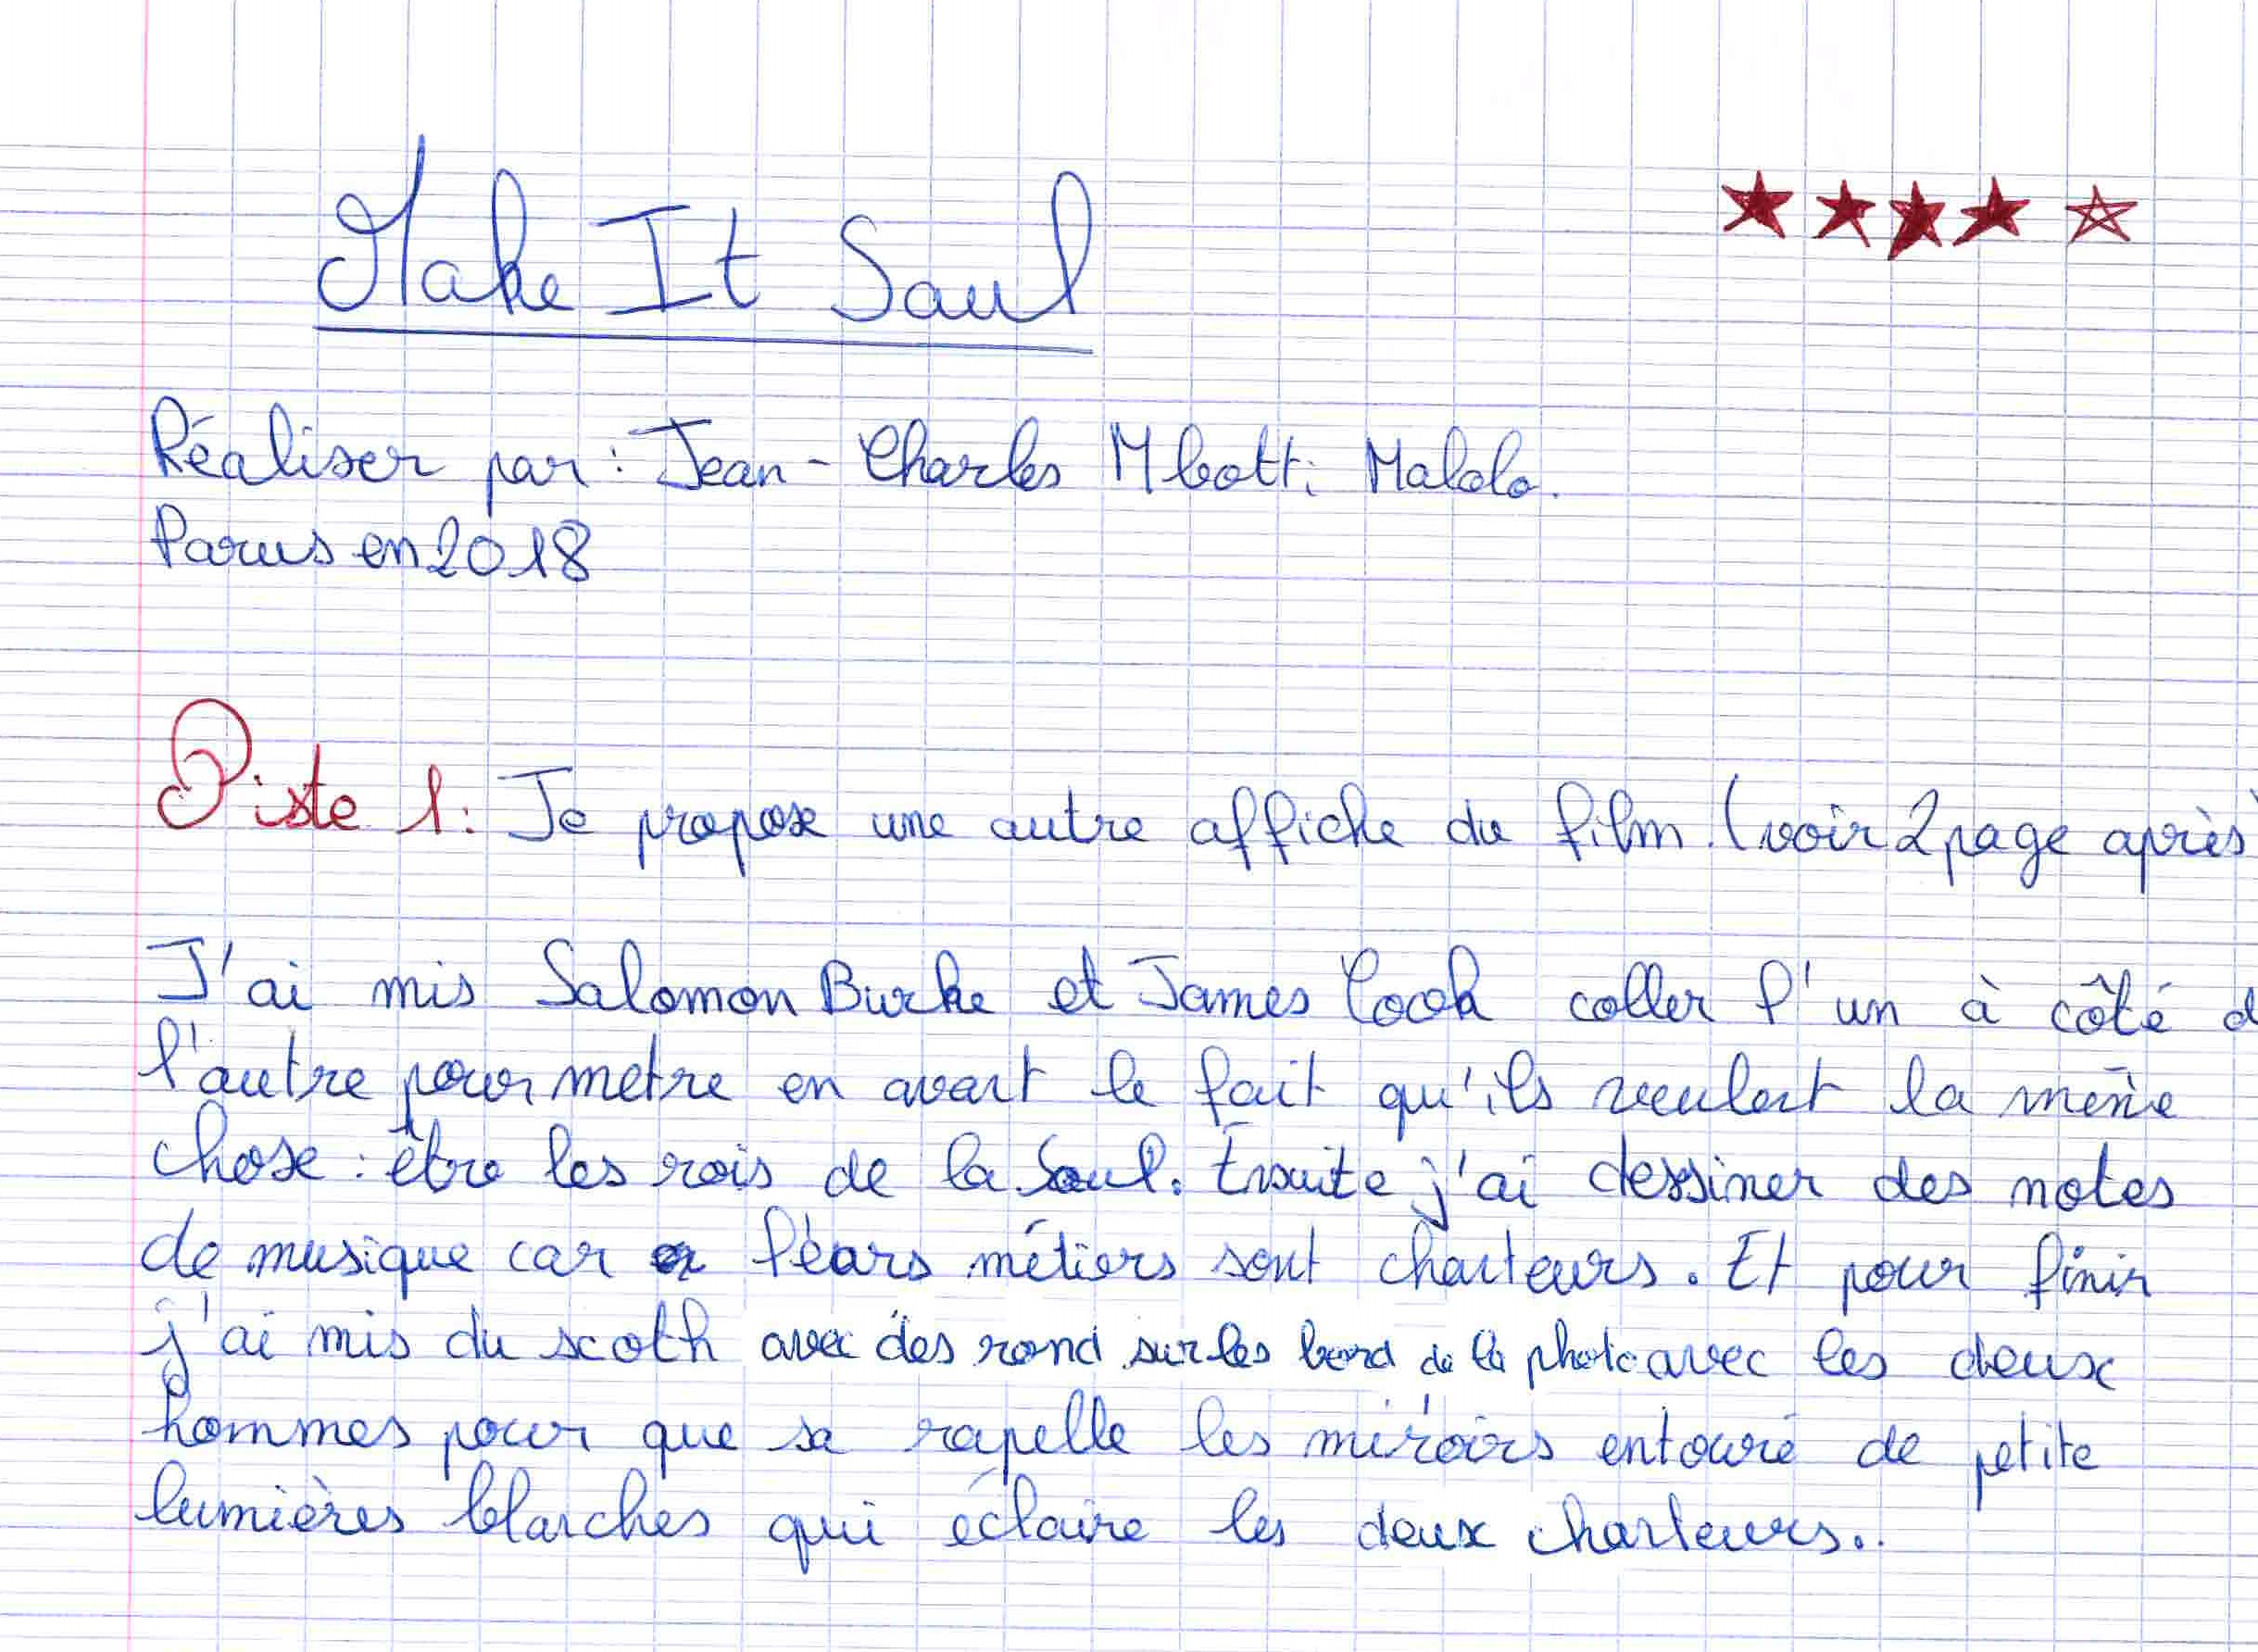 Make It Saul
Réaliser par : Jean-Charles Mbotti Malolo.
Parus en 2018
Piste 1: Je propose une autre affiche du film. (voir 2 page après)
J'ai mis Salomon Burke et James Cook coller l'un à côté d
l'autre pour metre en avant le fait qu'ils veulent la même
chose : être les rois de la Soul. Ensuite j'ai dessiner des notes
de musique car léars métiers sont chanteurs. Et pour finir
j'ai mis du scoth avec des rond sur les bord de la photo avec les deux
hommes pour que sa rapelle les miroirs entouré de petite
lumières blanches qui éclaire les deux chanteurs..